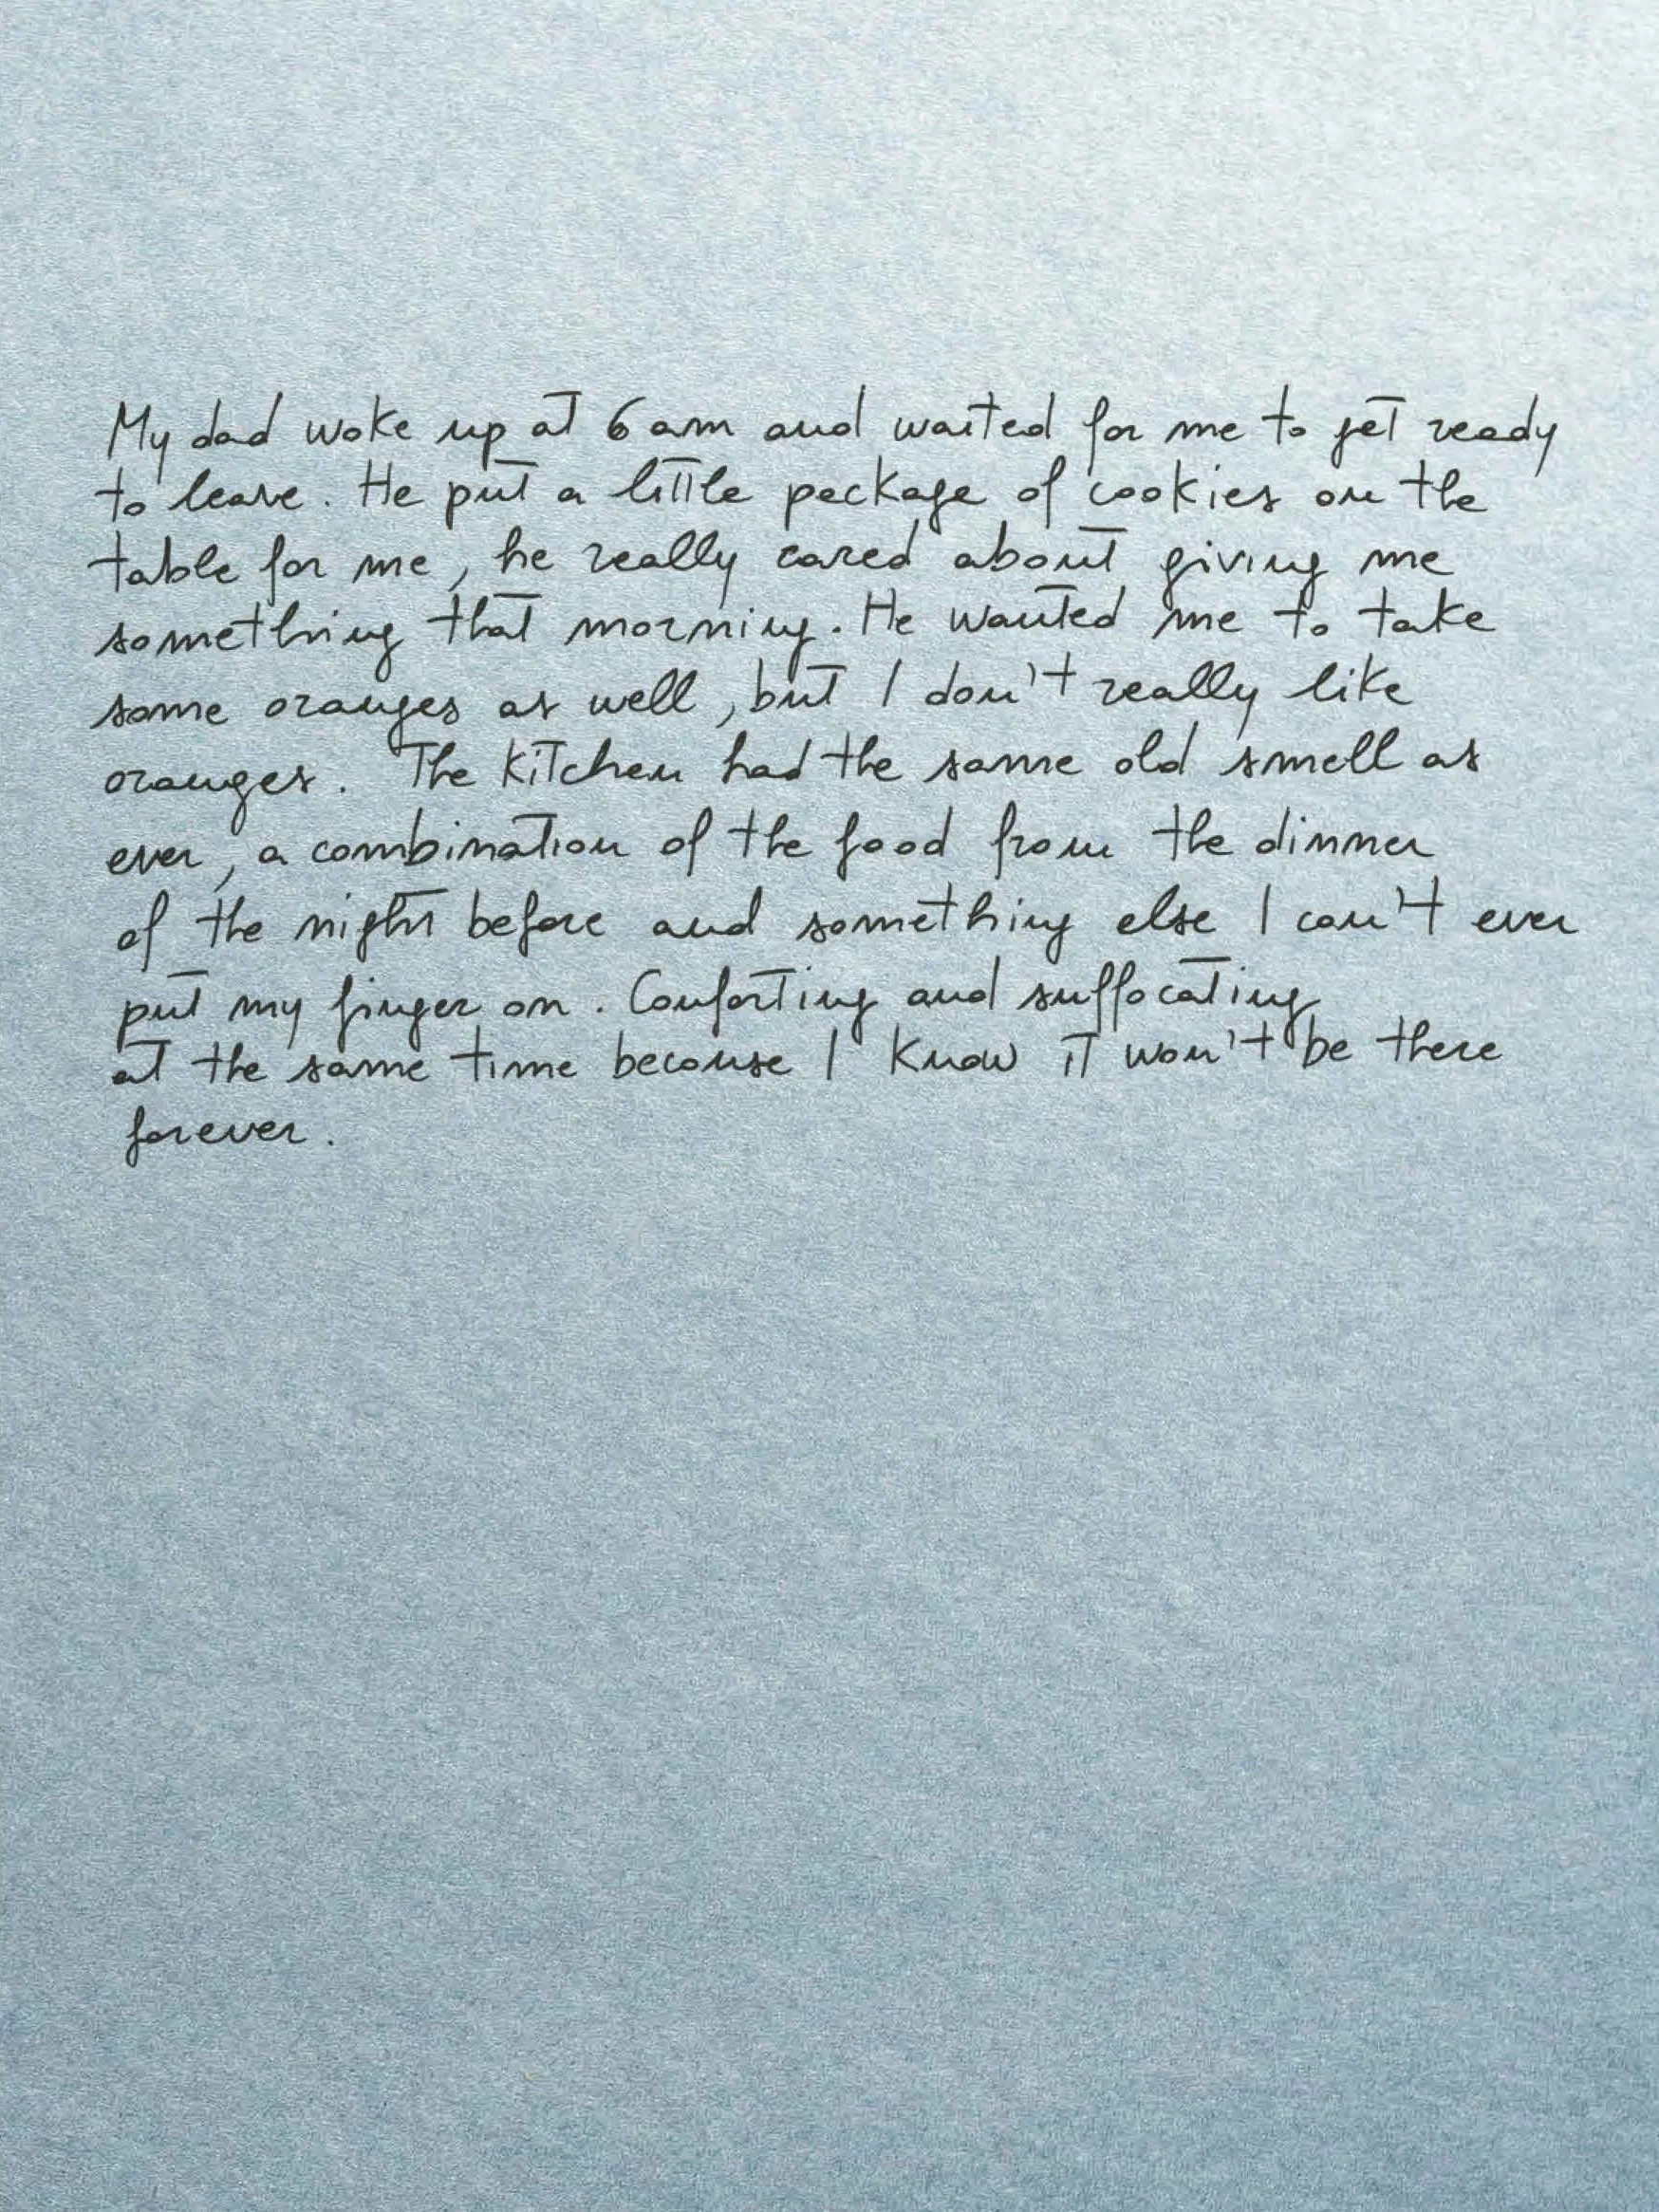 My dad woke up at 6 am and waited for me to get ready
to leave. He put a little package of cookies on the
table for me, he really cared about giving me
something that morning. He wanted me to take
some oranges as well, but I don't really like
oranges. The kitchen had the same old smell as
ever, a combination of the food from the dinner
of the night before and something else I can't ever
put my finger on. Conforting and suffocating
at the same time because I know it won't be there
forever.